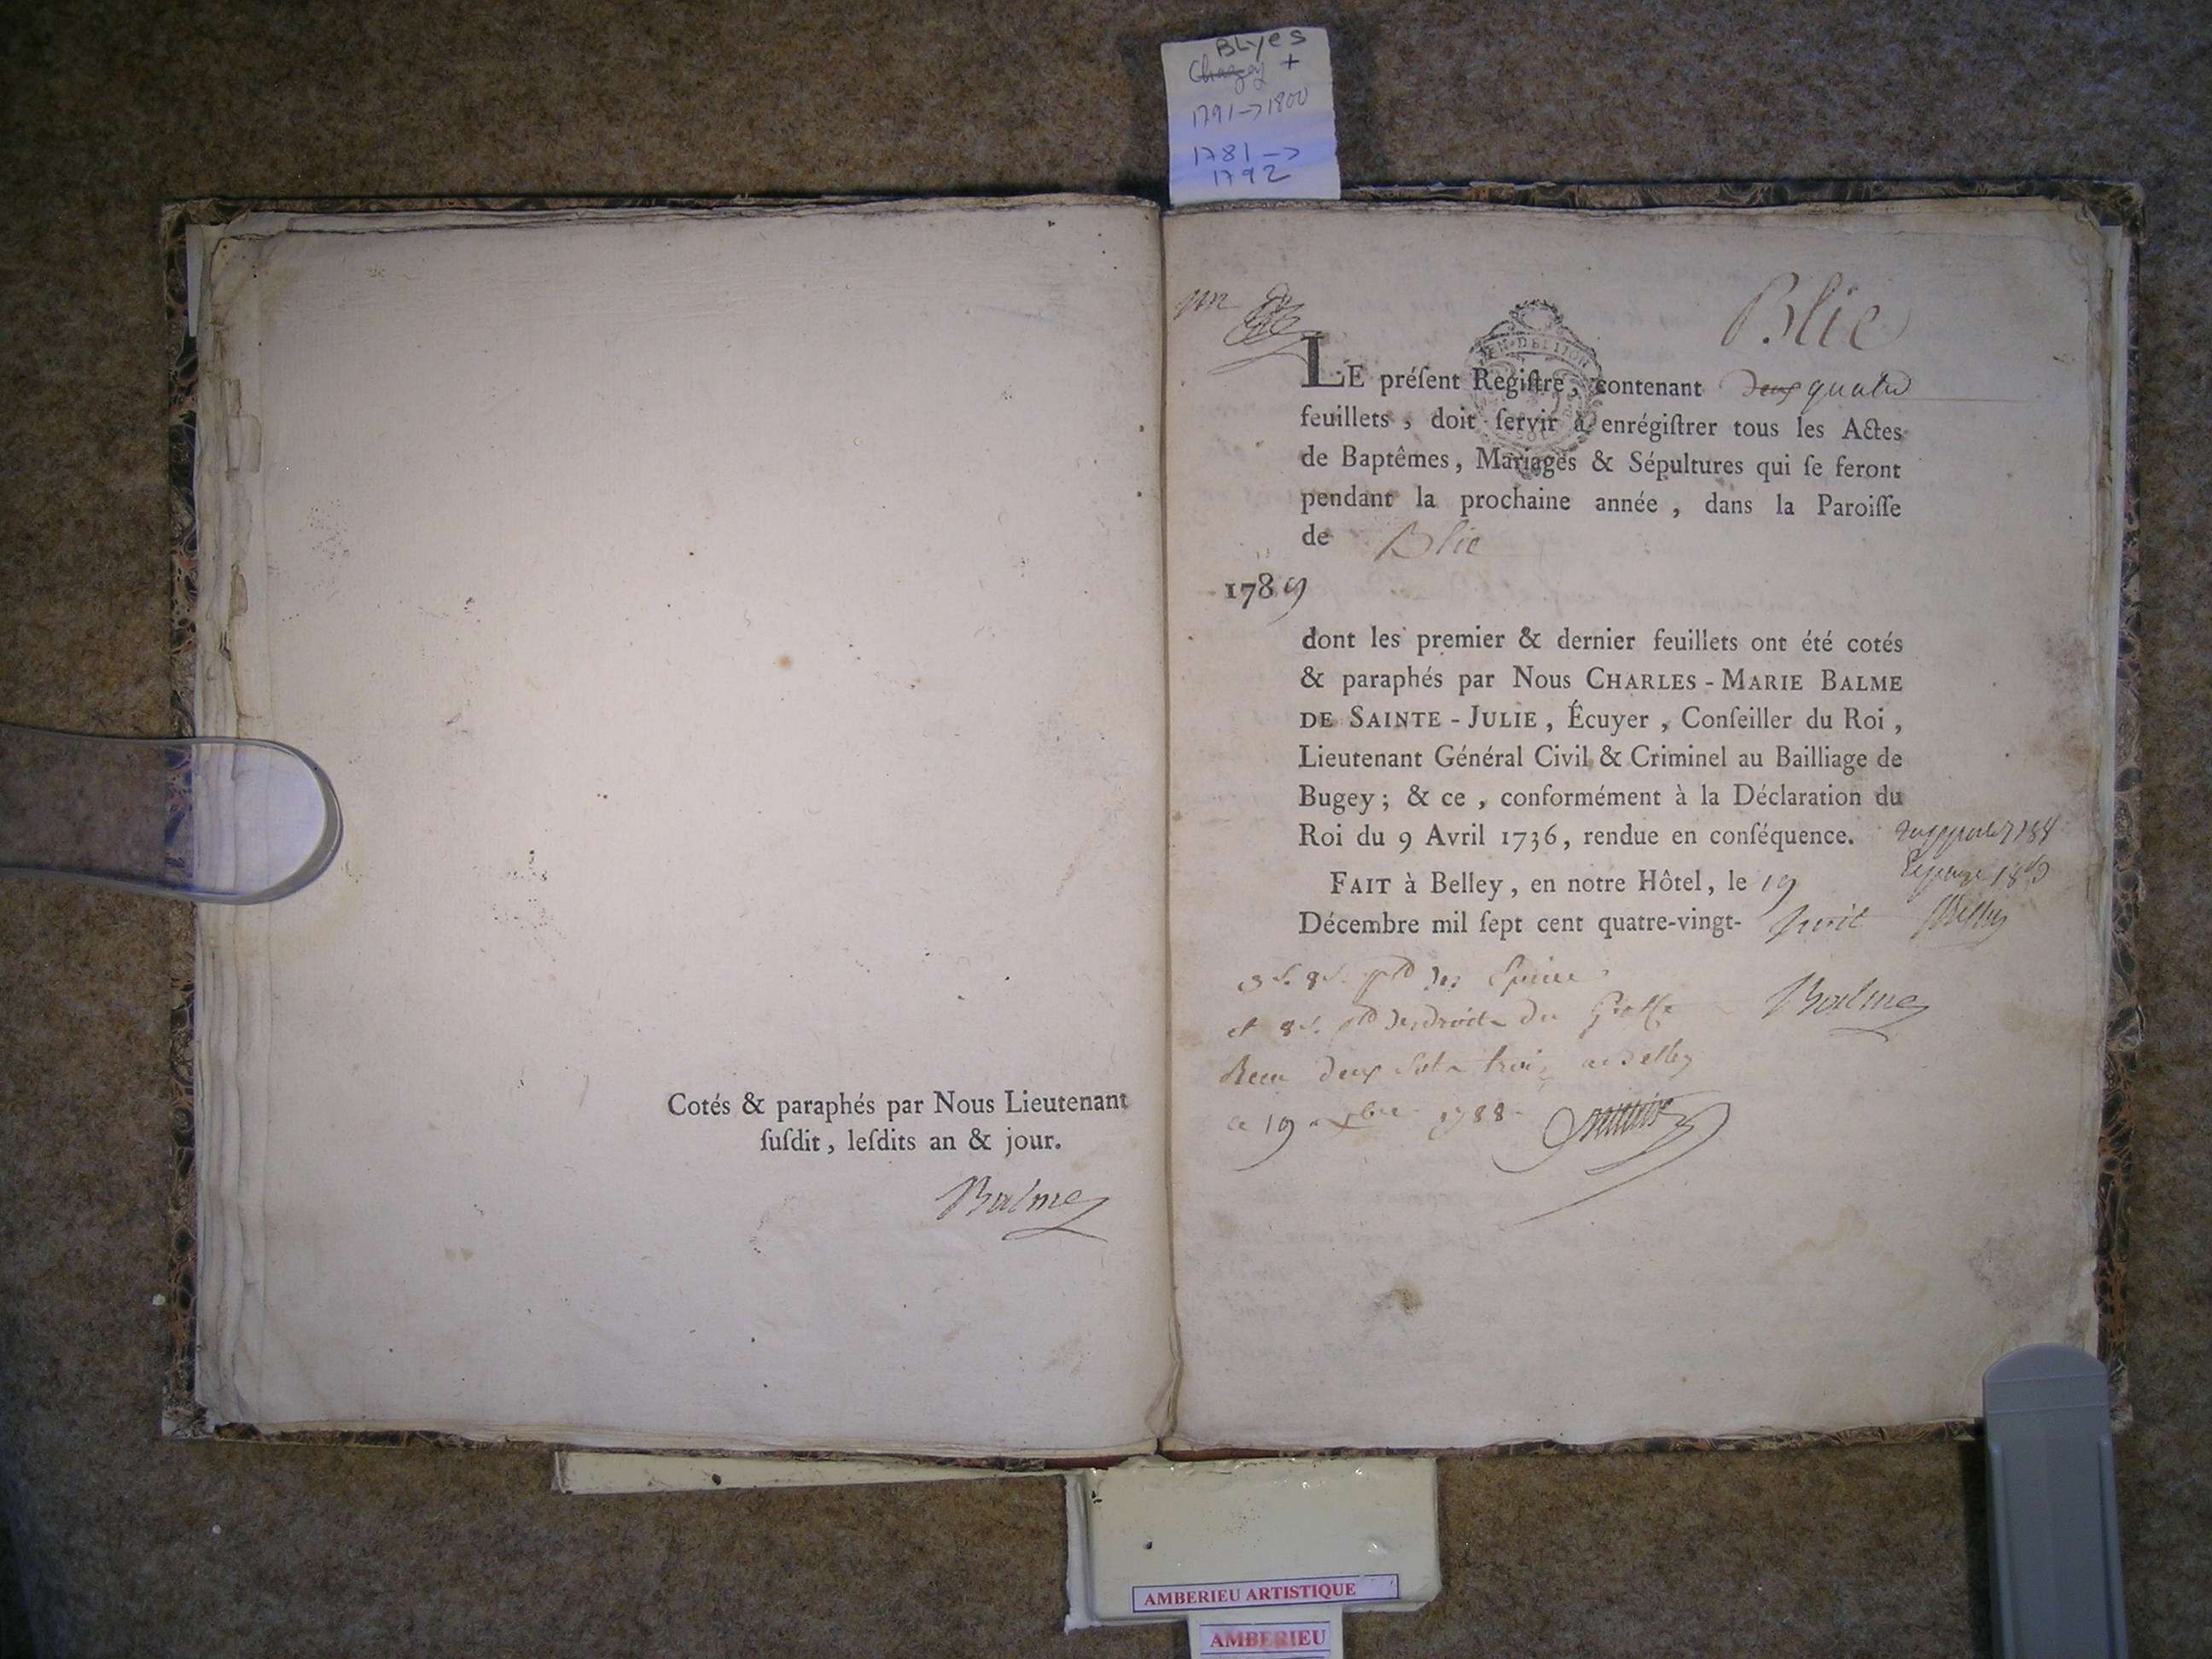 BLyes
Chazey +
1791->1800
1781->
1792
Cotés & paraphés par Nous Lieutenant
ſuſdit, leſdits an & jour.
Balme
Blie
LE préſent Regiſtre, contenant deux quatre
feuillets, doit ſervir à enrégiſtrer tous les Actes
de Baptêmes, Mariages & Sépultures qui ſe feront
pendant la prochaine année, dans la Paroiſſe
de Blie
1789
dont les premier & dernier feuillets ont été cotés
& paraphés par Nous CHARLES-MARIE BALME
DE SAINTE-JULIE, Écuyer, Conſeiller du Roi,
Lieutenant Général Civil & Criminel au Bailliage de
Bugey; & ce, conformément à la Déclaration du
Roi du 9 Avril 1736, rendue en conſéquence.
FAIT à Belley, en notre Hôtel, le 19
Décembre mil ſept cent quatre-vingt-huit
Balme
et 8 s. des droits du Greffe
Recu deux sols trois a Belley
ce 19 xbre 1788
AMBERIEU ARTISTIQUE
AMBERIEU